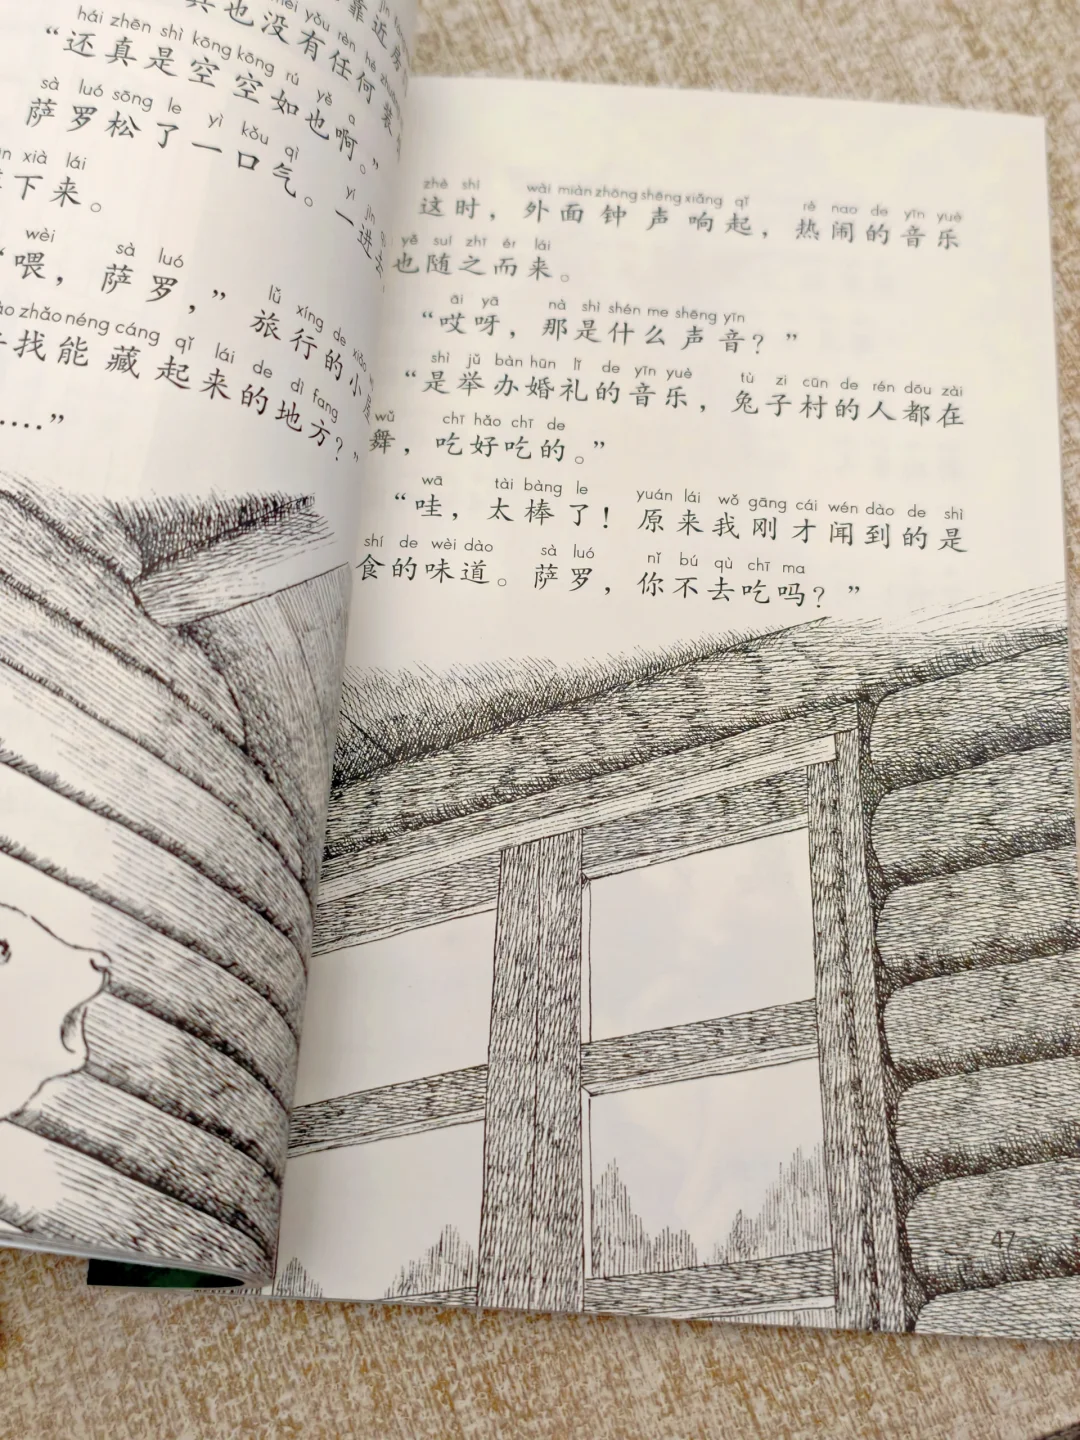 也没有任何装
“还真是空空如也啊。”
sà luó sōng le yì kǒu qì
萨罗松了一口气。一进去
xià lái
下来。
wèi sà luó lǚ xíng de
“喂，萨罗，”旅行的小
zhǎo néng cáng qǐ lái de dì fang
找能藏起来的地方？
……”
zhè shí wài miàn zhōng shēng xiǎng qǐ rè nao de yīn yuè
这时，外面钟声响起，热闹的音乐
yě suí zhī ér lái
也随之而来。
āi yā nà shì shén me shēng yīn
“哎呀，那是什么声音？”
shì jǔ bàn hūn lǐ de yīn yuè tù zi cūn de rén dōu zài
“是举办婚礼的音乐，兔子村的人都在
wǔ chī hǎo chī de
舞，吃好吃的。”
wā tài bàng le yuán lái wǒ gāng cái wén dào de shì
“哇，太棒了！原来我刚才闻到的是
shí de wèi dào sà luó nǐ bú qù chī ma
食的味道。萨罗，你不去吃吗？”
47